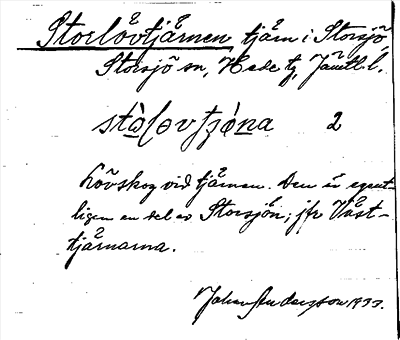 Storlövtjärnen tjärn i Storsjö,
Storsjö sn, Hede tg, Jämtl. l.
stɷ̀lɵvtjǽṇa 2
Lövskog vid tjärnen. Den är egent-
ligen en del av Storsjön; jfr Väst-
tjärnarna.
Johan Andersson 1933.